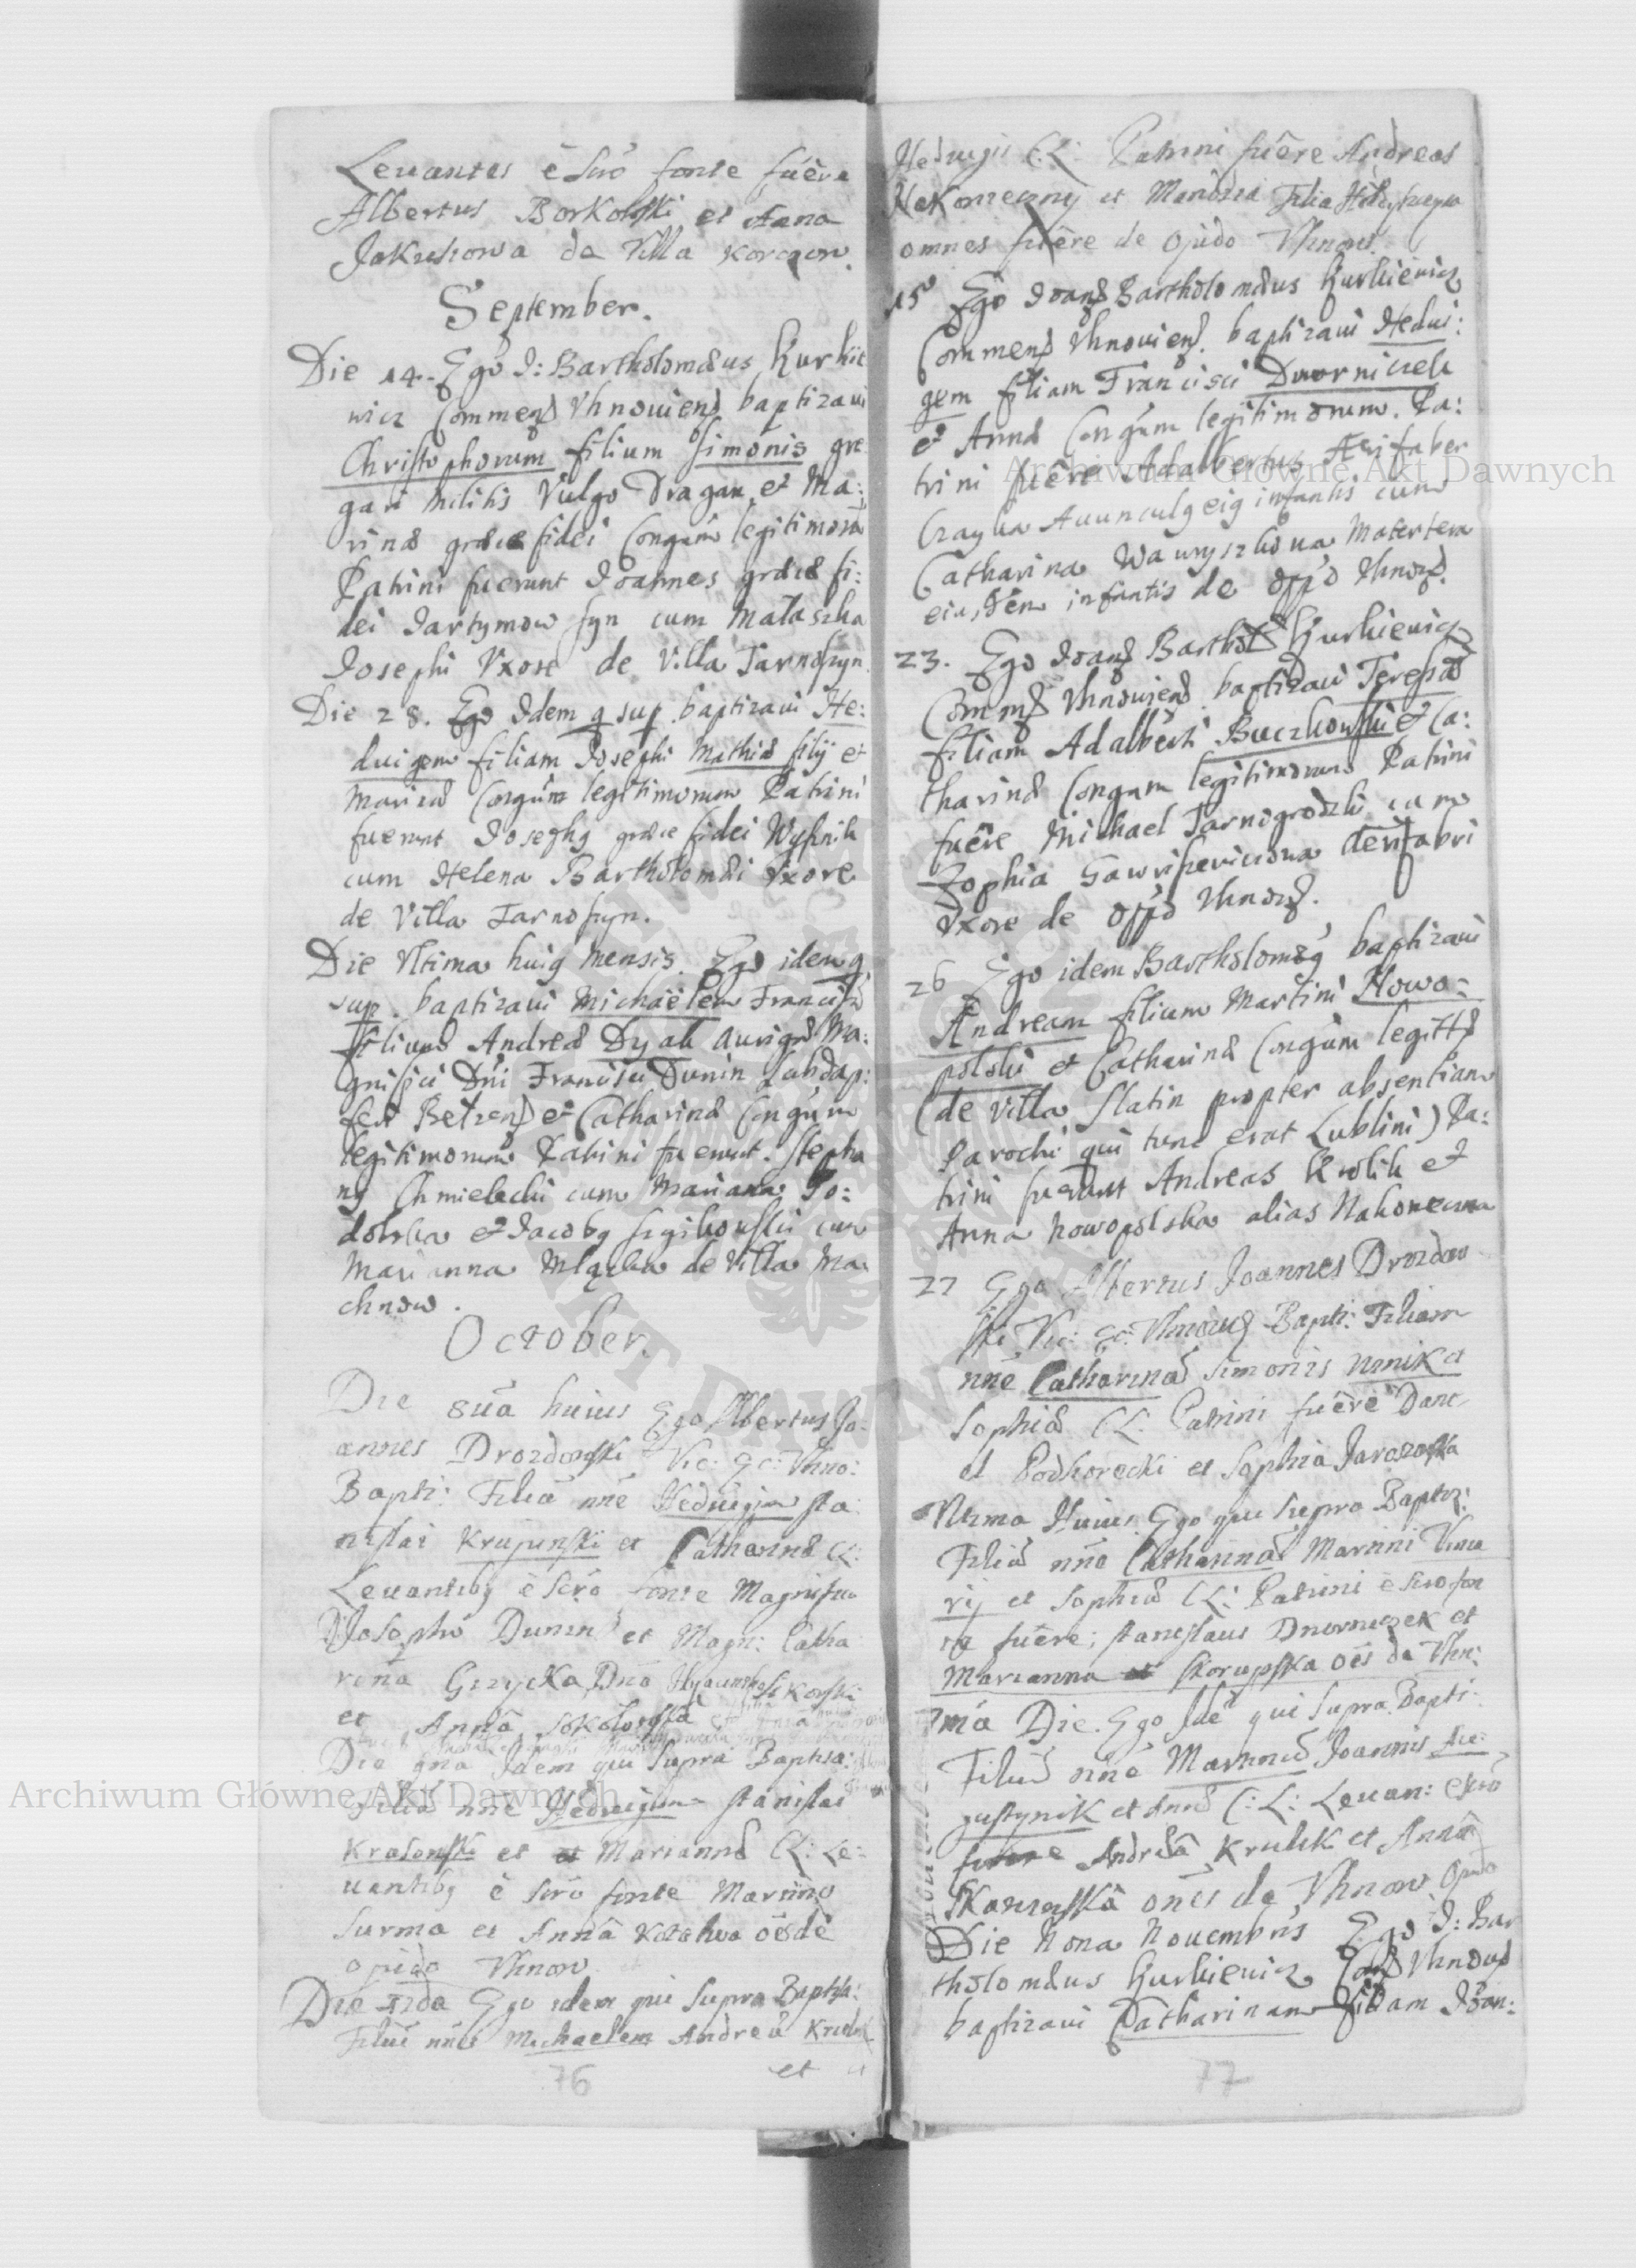 Levantes è Scrō fonte fuêre
Albertus Borkolski et Anna
Jakubowa de Villa Korczow.
September.
Die 14. Ego J: Bartholomæus Kurkie
wicz Commend Vhnouiens baptizaui
Christophorum filium Simonis gre
garii militis Vulgo Dragan et Ma:
rinæ græcæ fidei Congum legitimorū
Patrini fuerunt Joannes græcæ fi:
dei Jartymow syn cum Mataszka
Josephi Vxore de Villa Tarnoszyn
Die 28. Ego Idem q sup. baptizaui He:
duigem filiam Josephi Mathiæ filij et
Mariæ Congum legitimorum Patrini
fuerunt Josephg græcæ fidei Wysnik
cum Helena Bartholomæi Vxore
de Villa Tarnoszyn.
Die Vltima huig Mensis. Ego idem q
sup. baptizaui Michaëlem Franciscū
filium Andreæ Dyak aurigæ Ma:
gnifici Dni Francisci Dunin Subdap:
feri Belzens et Catharinæ Congum
legitimorum Patrini fuerunt. Stepha
ng Chmielecki cum Marianna Po:
dolska et Jacobg
Marianna de Villa Ma
chnow.
October.
Die 8uâ huius Ego Albertus Jo:
annes Drozdowski Vic: Ec: Vhno:
Bapti: Filiā nñe Heduigim Sta:
nislai Krupinski et Catharinæ CL:
Levantibg è Scrō fonte Magnifico
D Josepho Dunin et Magn: Catha
rina Gizycka, Dno
et Annâ Sokolowska
Die Idem qui Supra Baptiza:
Filiā nñe Heduigim Stanislai
Kralowski et et Mariannæ CL: Le:
uantibg è Scrō fonte Martino
Surma et Annâ oēs de
opido Vhnow
Die Ego idem qui Supra Baptiza:
Filiū nñe Michaelem Andreæ
et
76
Heduigis C:L: Patrini fuêre Andreas
Nakonieczny et Filia
omnes fuêre de opido Vhnow.
15 Ego Joans Bartholomæus Kurkiewicz
Commens Vhnouiens. baptizaui Hedui:
gem filiam Francisci Dworniczek
et Annæ Congum legitimorum. Pa:
trini fuêre Adalbertus Aerifaber
Czayka Auunculg eig infantis cum
Catharina Wawryszkowa Matertera
eiusdem infantis de Opp̄o Vhnow.
23. Ego Joans Barthol Kurkiewicz
Comms Vhnouiens baptizaui Teresiā
filiam Adalberti Buczkowski et Ca:
tharinæ Congum legitimorum Patrini
fuêre Michael Tarnogrodzki cum
Zophia
Vxore de Opp̄o Vhnow.
26 Ego idem Bartholomæg baptizaui
Andream filium Martini Nowo=
polski et Catharinæ Congum legitt
(de Villa Slatin propter absentiam
Parochi qui tunc erat Lublini) Pa:
trini fuerunt Andreas Krolik et
Anna Nowopolska alias Nakoneczna
27 Ego Albertus Joannes Drozdow
ski Vic: Ec: Vhnoui Bapti: Filiam
nñe Catharinā Simonis et
Sophiæ CL: Patrini fuêre Dani
el Podhorecki et Sophia
Vltima Huius Ego qui Supra Baptiz:
Filiā nñe Catharinā Martini
et Sophiæ CL: Patrini è Scro fon
te fuêre; Stanislaus Dworniczek et
Marianna et Skorupska oēs de Vhn:
Die. Ego Idē qui Supra Bapti:
Filiū nñe Martinū Joannis Au:
gustynik et Annæ C:L: Levan: è Scrō
fonte Andreâ Krulik et Annâ
onēs de Vhnow Opido
Die Nona Nouembris Ego J: Bar
tholomæus Kurkiewicz Vhnous
baptizaui Catharinam filiam Joan:
77
Archiwum Główne Akt Dawnych
Archiwum Główne Akt Dawnych